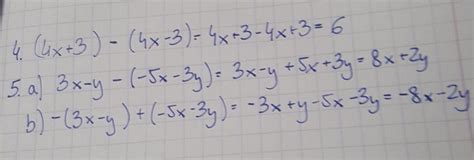 4. (4x+3) - (4x-3) = 4x+3-4x+3 = 6
5. a) 3x-y - (-5x-3y) = 3x-y+5x+3y = 8x+2y
b) -(3x-y) + (-5x-3y) = -3x+y-5x-3y = -8x-2y